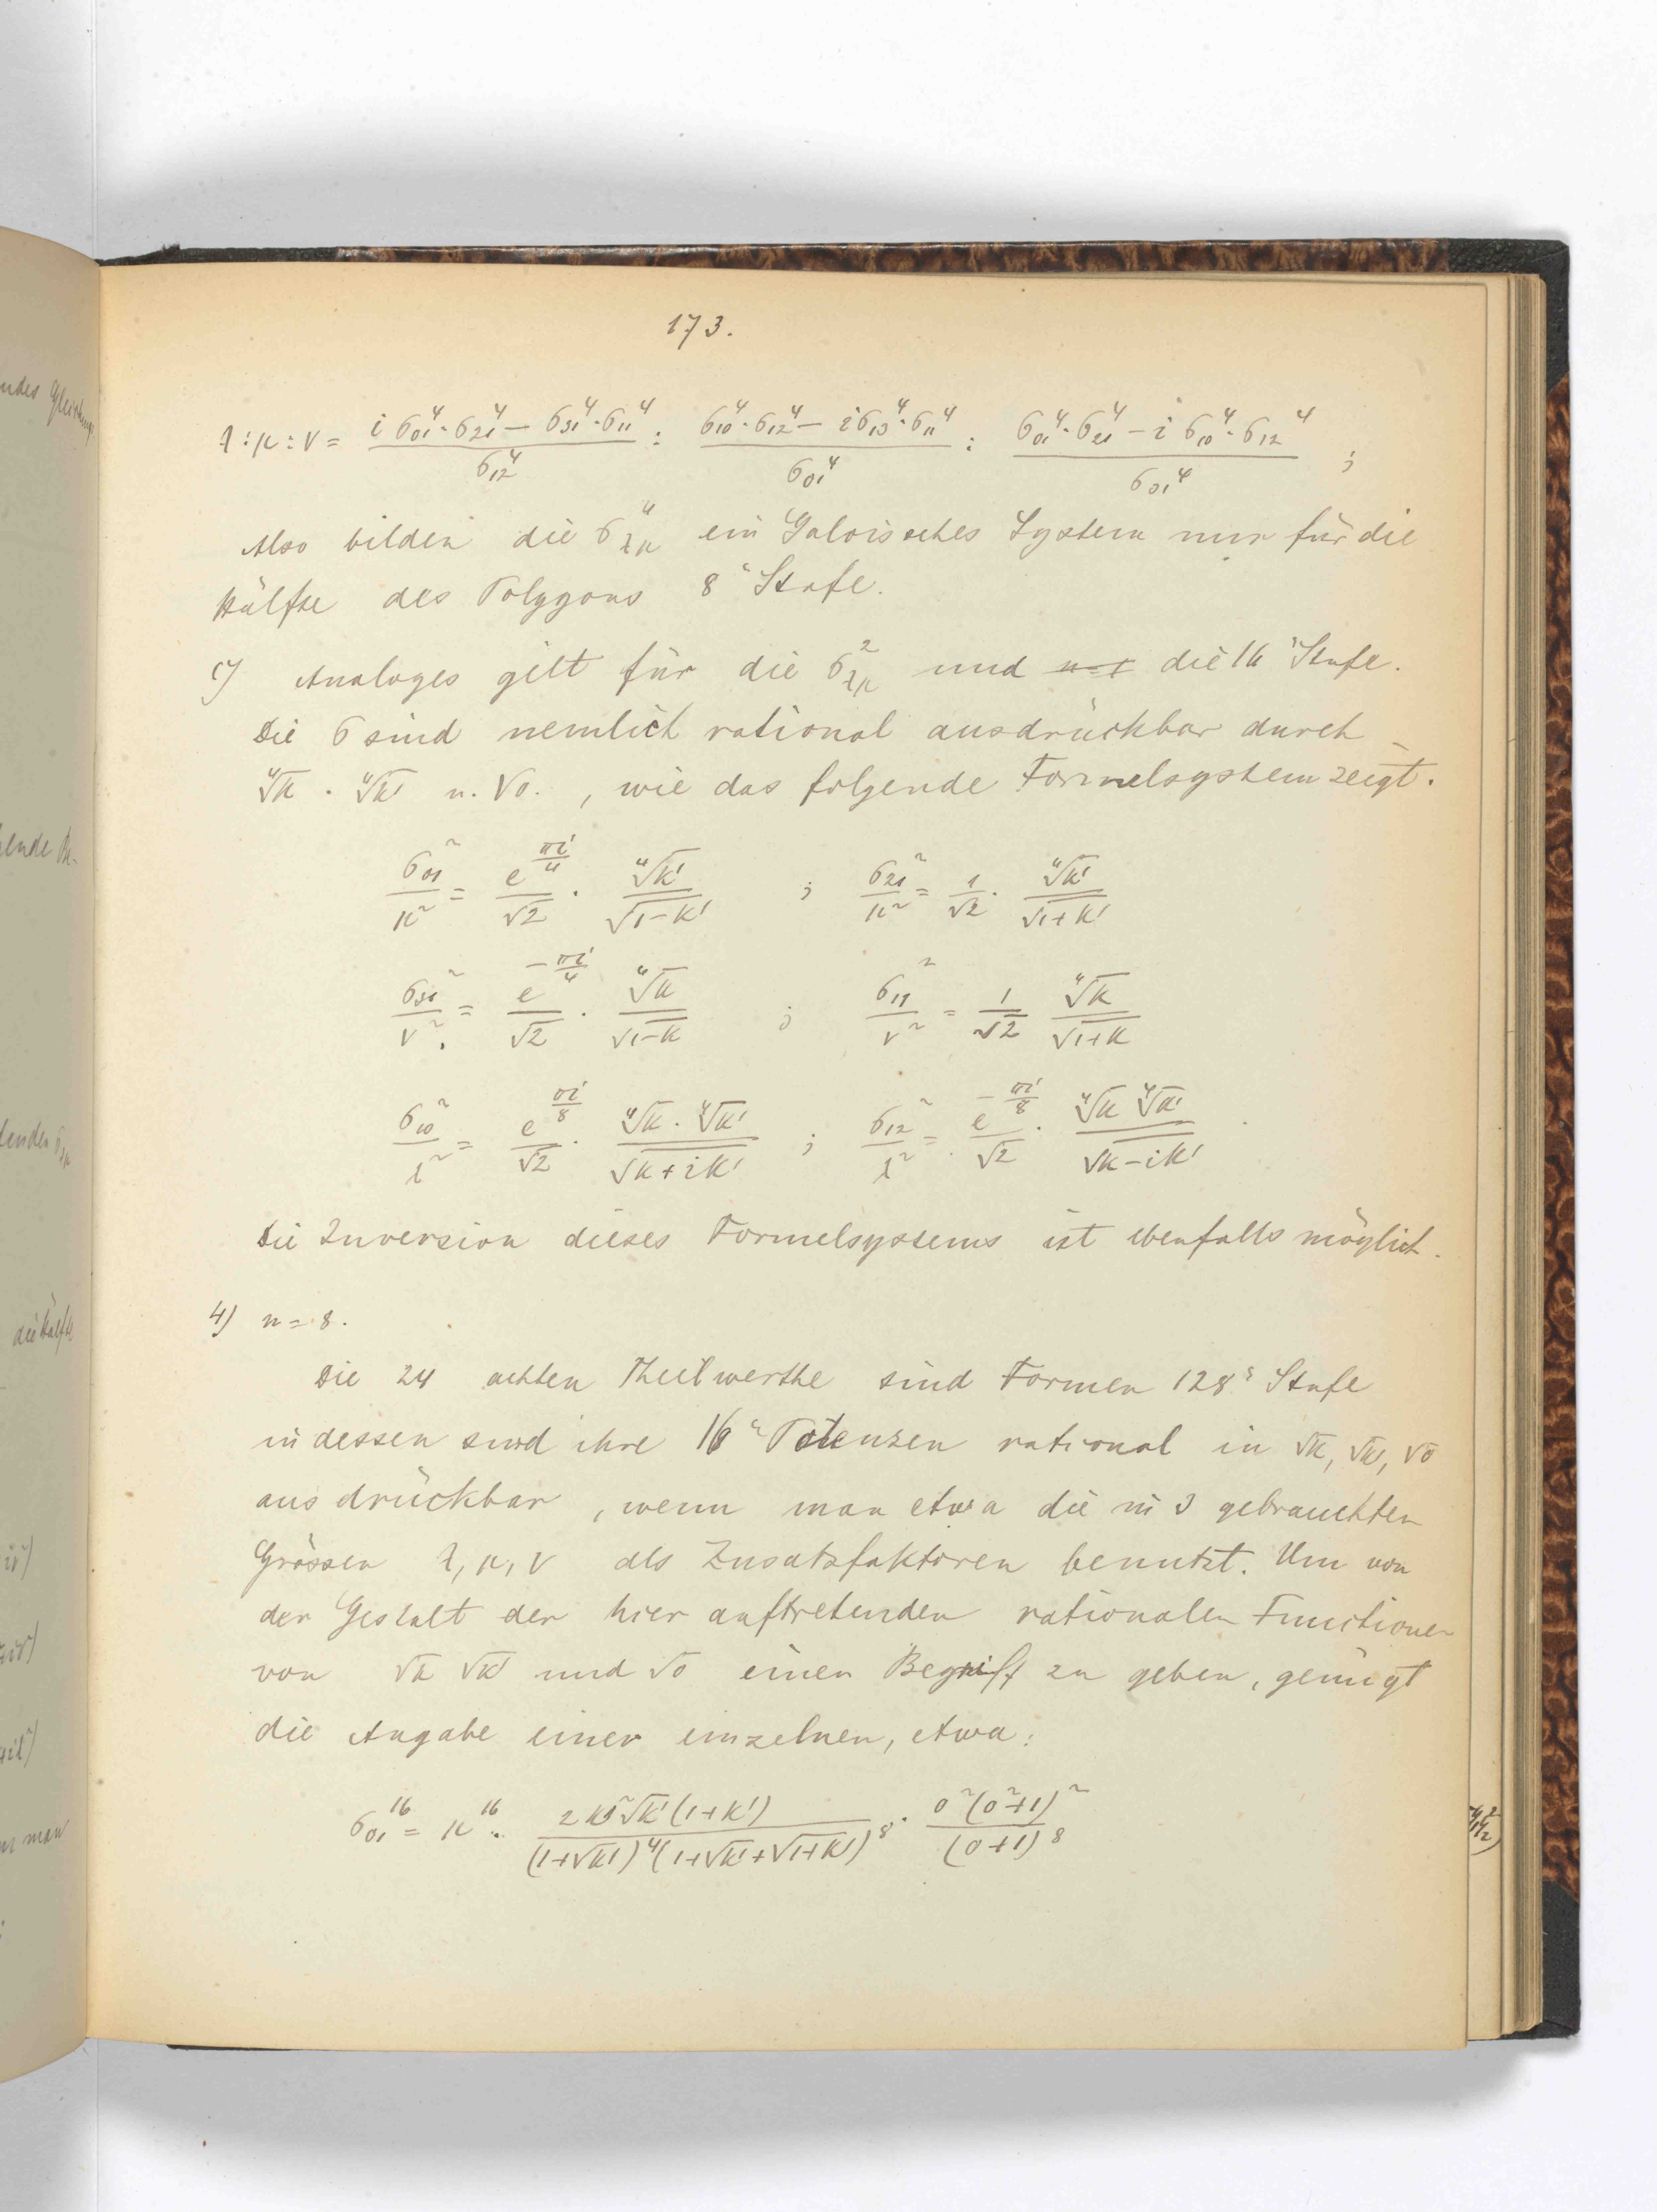 173.
λ:μ:ν = (i σ₀₁⁴·σ₂₁⁴ − σ₃₁⁴·σ₁₁⁴)/σ₁₂⁴ : (σ₁₀⁴·σ₁₂⁴ − i σ₁₃⁴·σ₁₁⁴)/σ₀₁⁴ : (σ₀₁⁴·σ₂₁⁴ − i σ₁₀⁴·σ₁₂⁴)/σ₃₁⁴ ;
Also bilden die σ_λμ⁴ ein Galoissches System nur für die
Hälfte des Polygons 8ʳ Stufe.
c) Analoges gilt für die σ_λμ² und die 16ʳ Stufe.
Die σ sind nemlich rational ausdrückbar durch
∜k . ∜k' u. √o. , wie das folgende Formelsystem zeigt.
σ₀₁²/μ² = e^(πi/4)/√2 · ∜k'/√(1−k') ; σ₂₁²/μ² = 1/√2 · ∜k'/√(1+k')
σ₃₁²/ν² = e^(−πi/4)/√2 · ∜k/√(1−k) ; σ₁₁²/ν² = 1/√2 ∜k/√(1+k)
σ₁₀²/λ² = e^(πi/8)/√2 · ∜k·∜k'/√(k+ik') ; σ₁₂²/λ² = e^(−πi/8)/√2 · ∜k ∜k'/√(k−ik')
Die Inversion dieses Formelsystems ist ebenfalls möglich.
4) n = 8.
Die 24 achten Theilwerthe sind Formen 128ʳ Stufe
indessen sind ihre 16ⁿ Potenzen rational in √k, √k', √o
ausdrückbar, wenn man etwa die in 3 gebrauchten
Grössen λ, μ, ν als Zusatzfaktoren benutzt. Um von
der Gestalt der hier auftretenden rationalen Functionen
von √k √k' und √o einen Begriff zu geben, genügt
die Angabe einer einzelnen, etwa:
σ₀₁¹⁶ = μ¹⁶. 2k'²√k'(1+k')/((1+√k')⁴(1+√k'+√(1+k'))⁸) · o²(o²+1)²/(o+1)⁸